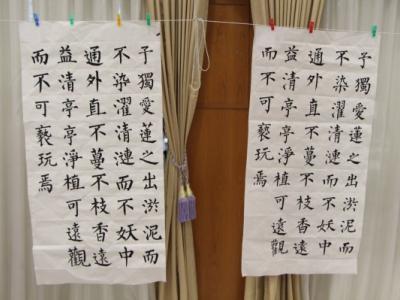 予獨愛蓮之出淤泥而
不染濯清漣而不妖中
通外直不蔓不枝香遠
益清亭亭淨植可遠觀
而不可褻玩焉
予獨愛蓮之出淤泥而
不染濯清漣而不妖中
通外直不蔓不枝香遠
益清亭亭淨植可遠觀
而不可褻玩焉